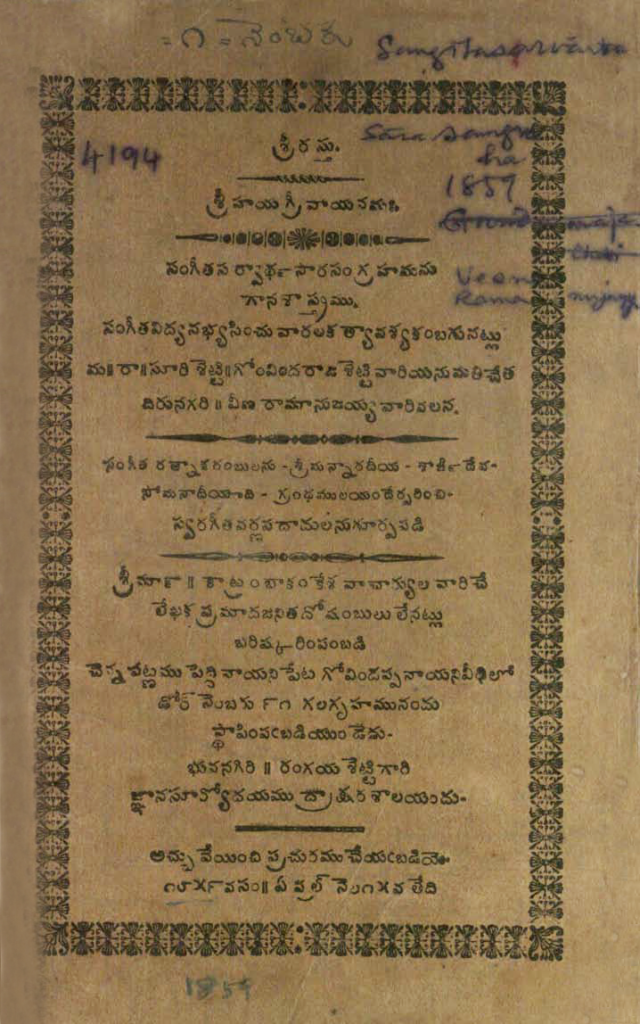 = ౧ = నెంబరు
Sangitasarvartha
శ్రీరస్తు.
Sara sangra
ha
4194
1859
శ్రీ హయగ్రీవాయనమః
సంగీతసర్వార్థసారసంగ్రహమను
Veena
Ramanujayya
గానశాస్త్రము.
సంగీతవిద్యనభ్యసించువారలకత్యావశ్యకంబగునట్లు
మ॥రా॥సూరిశెట్టి॥గోవిందరాజశెట్టివారియనుమతిచేత
దిరునగరి॥ వీణ రామానుజయ్యవారివలన.
సంగీత రత్నాకరంబులను - శ్రీమన్నారదీయ - శార్ఙదేవ-
సోమనాదీయాది - గ్రంథములయందేర్పరించి-
స్వరగీతవర్ణపదాములనుగూర్పబడి
శ్రీమా౯॥ కాట్రంబాకంకేశవాచార్యులవారిచే
లేఖకప్రమాదజనితదోషంబులు లేనట్లు
బరిష్కరింపంబడి
చెన్నపట్టము పెద్దినాయనిపేట గోవిందప్పనాయనివీథిలో
డోర్ నెంబరు ౯౧ గలగృహమునందు
స్థాపింపఁబడియుండెడు-
భువనగిరి॥ రంగయశెట్టిగారి
జ్ఞానసూర్యోదయము ద్రాక్షరశాలయందు-
అచ్చువేయించి ప్రచురముచేయఁబడియె-
౧౮౫౯ వసం॥ ఏప్రల్ నెల౧౫వ తేది
1859